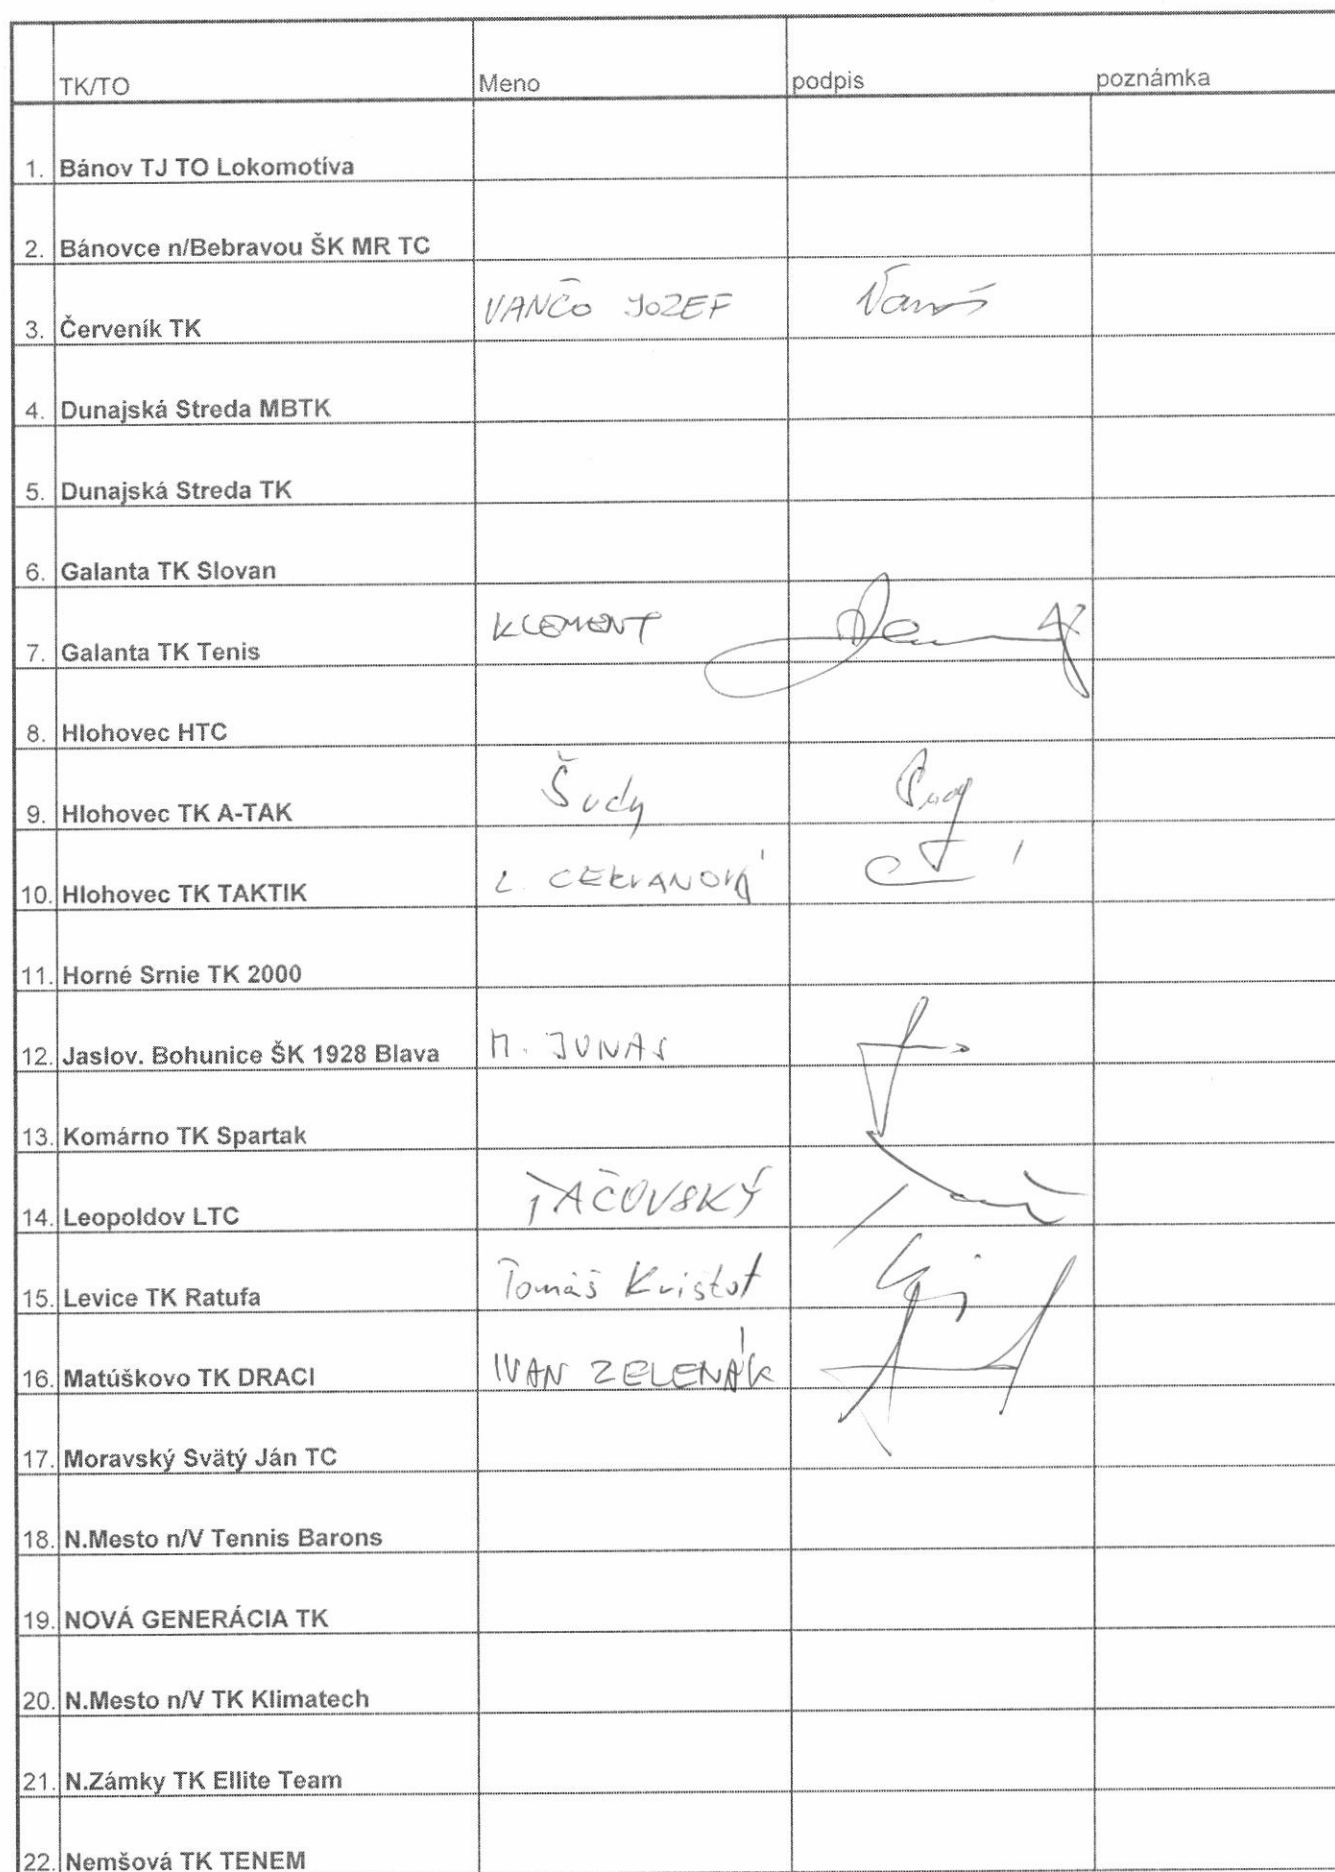 TK/TO Meno podpis poznámka
1. Bánov TJ TO Lokomotíva
2. Bánovce n/Bebravou ŠK MR TC
3. Červeník TK VANČO JOZEF
4. Dunajská Streda MBTK
5. Dunajská Streda TK
6. Galanta TK Slovan
7. Galanta TK Tenis KLEMENT
8. Hlohovec HTC
9. Hlohovec TK A-TAK Šudy
10. Hlohovec TK TAKTIK L.
11. Horné Srnie TK 2000
12. Jaslov. Bohunice ŠK 1928 Blava M. JUNAS
13. Komárno TK Spartak
14. Leopoldov LTC
15. Levice TK Ratufa Tomáš Krištof
16. Matúškovo TK DRACI IVAN ZELENÁK
17. Moravský Svätý Ján TC
18. N.Mesto n/V Tennis Barons
19. NOVÁ GENERÁCIA TK
20. N.Mesto n/V TK Klimatech
21. N.Zámky TK Ellite Team
22. Nemšová TK TENEM